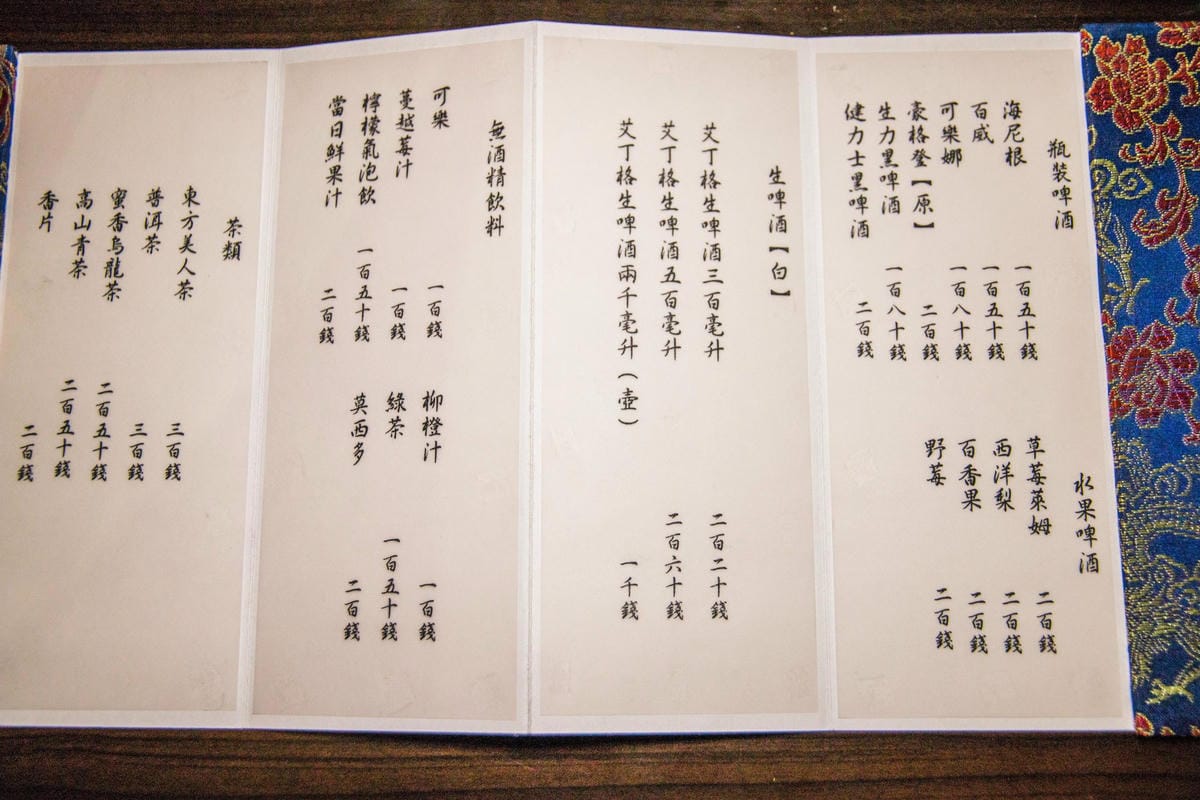 瓶裝啤酒
海尼根 一百五十錢
百威 一百五十錢
可樂娜 一百八十錢
豪格登【原】 二百錢
生力黑啤酒 一百八十錢
健力士黑啤酒 二百錢
水果啤酒
草莓萊姆 二百錢
西洋梨 二百錢
百香果 二百錢
野莓 二百錢
生啤酒【白】
艾丁格生啤酒三百毫升 二百二十錢
艾丁格生啤酒五百毫升 二百六十錢
艾丁格生啤酒兩千毫升（壺） 一千錢
無酒精飲料
可樂 一百錢
蔓越莓汁 一百錢
檸檬氣泡飲 一百五十錢
當日鮮果汁 二百錢
柳橙汁 一百錢
綠茶 一百五十錢
莫西多 二百錢
茶類
東方美人茶 三百錢
普洱茶 三百錢
蜜香烏龍茶 二百五十錢
高山青茶 二百五十錢
香片 二百錢